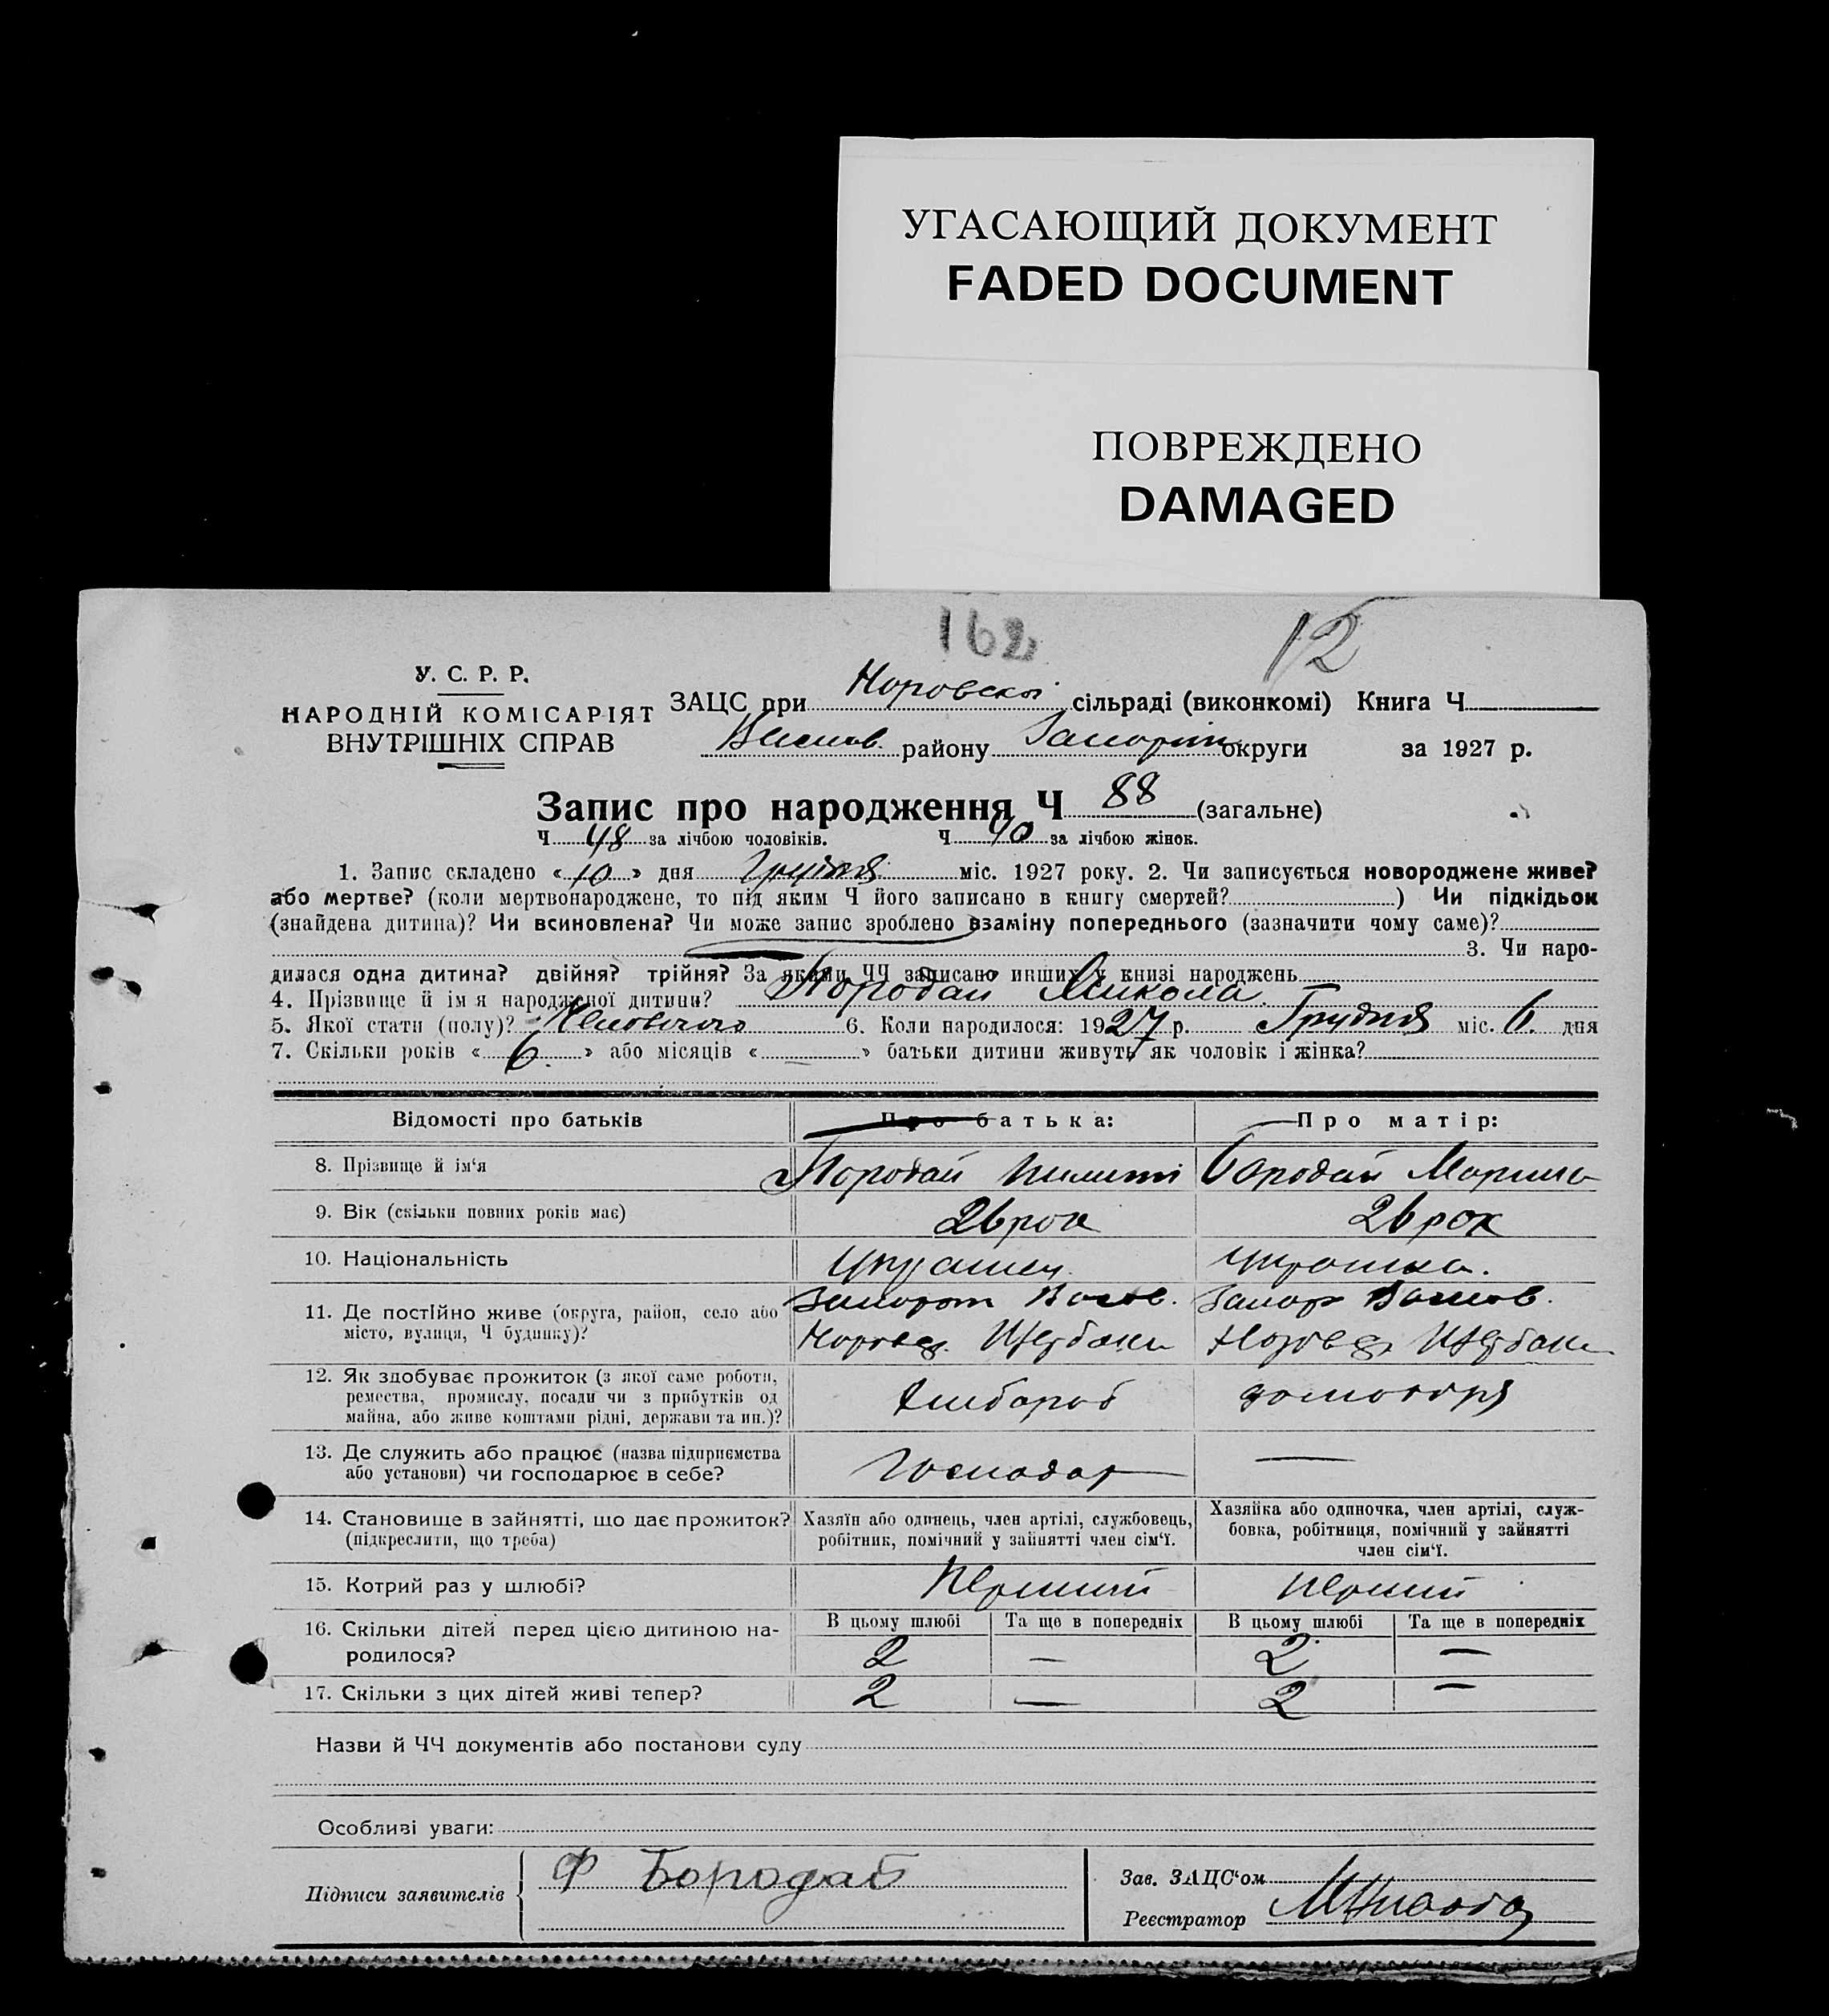 УГАСАЮЩИЙ ДОКУМЕНТ
FADED DOCUMENT
ПОВРЕЖДЕНО
DAMAGED
162
12
У. С. Р. Р.
НАРОДНІЙ КОМІСАРІЯТ
ВНУТРІШНІХ СПРАВ
ЗАЦС при сільраді (виконкомі) Книга Ч
району округи за 1927 р.
Запис про народження Ч 88 (загальне)
Ч 48 за лічбою чоловіків. Ч 40 за лічбою жінок.
1. Запис складено « 10 » дня Грудня міс. 1927 року. 2. Чи записується новороджене живе?
або мертве? (коли мертвонароджене, то під яким Ч його записано в книгу смертей? ) Чи підкідьок
(знайдена дитина)? Чи всиновлена? Чи може запис зроблено взаміну попереднього (зазначити чому саме)?
3. Чи наро-
дилася одна дитина? двійня? трійня? За якими ЧЧ записано инших у книзі народжень
4. Прізвище й ім я народженої дитини? Бородай Микола
5. Якої стати (полу)? 6. Коли народилося: 1927 р. Грудня міс. 6. дня
7. Скільки років « 6 » або місяців « — » батьки дитини живуть як чоловік і жінка?
Відомості про батьків Про батька: Про матір:
8. Прізвище й ім‘я Бородай Бородай
9. Вік (скільки повних років має) 26 рок 26 рок
10. Національність
11. Де постійно живе (округа, район, село або
місто, вулиця, Ч будинку)? Щербаки Щербаки
12. Як здобуває прожиток (з якої саме роботи,
ремества, промислу, посади чи з прибутків од
майна, або живе коштами рідні, держави та ин.)?
13. Де служить або працює (назва підприємства
або установи) чи господарює в себе? Господар —
14. Становище в зайнятті, що дає прожиток?
(підкреслити, що треба)
Хазяїн або одинець, член артілі, службовець,
робітник, помічний у зайнятті член сім‘ї.
Хазяйка або одиночка, член артілі, служ-
бовка, робітниця, помічний у зайнятті
член сім‘ї.
15. Котрий раз у шлюбі? Перший Перший
В цьому шлюбі Та ще в попередніх В цьому шлюбі Та ще в попередніх
16. Скільки дітей перед цією дитиною на-
родилося? 2 — 2 —
17. Скільки з цих дітей живі тепер? 2 — 2 —
Назви й ЧЧ документів або постанови суду
Особливі уваги:
Підписи заявителів Ф Бородай
Зав. ЗАЦС‘ом
Реєстратор